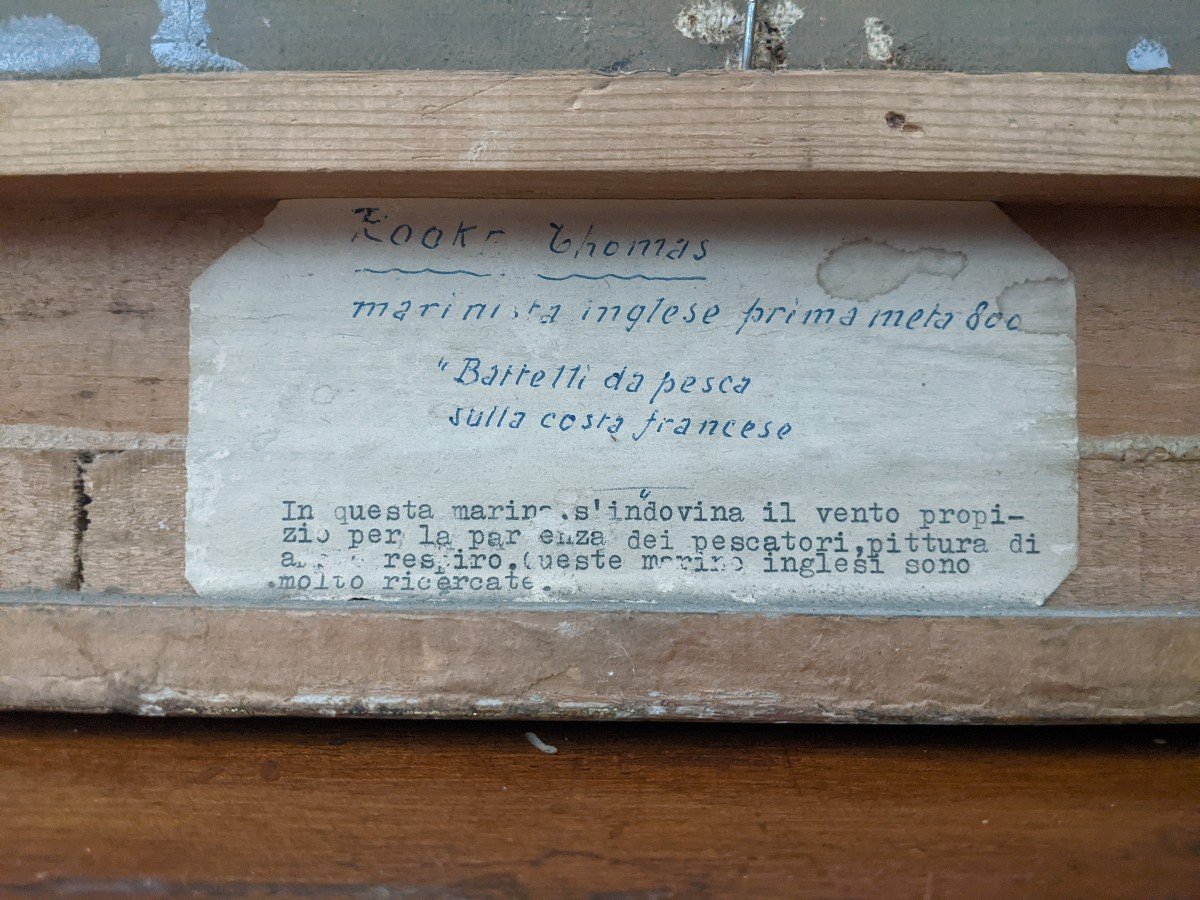 Rooke Thomas
marinista inglese prima meta 800
"Battelli da pesca
sulla costa francese
"
In questa marina s'indovina il vento propi-
zio per la partenza dei pescatori,pittura di
respiro.Queste marine inglesi sono
molto ricercate.